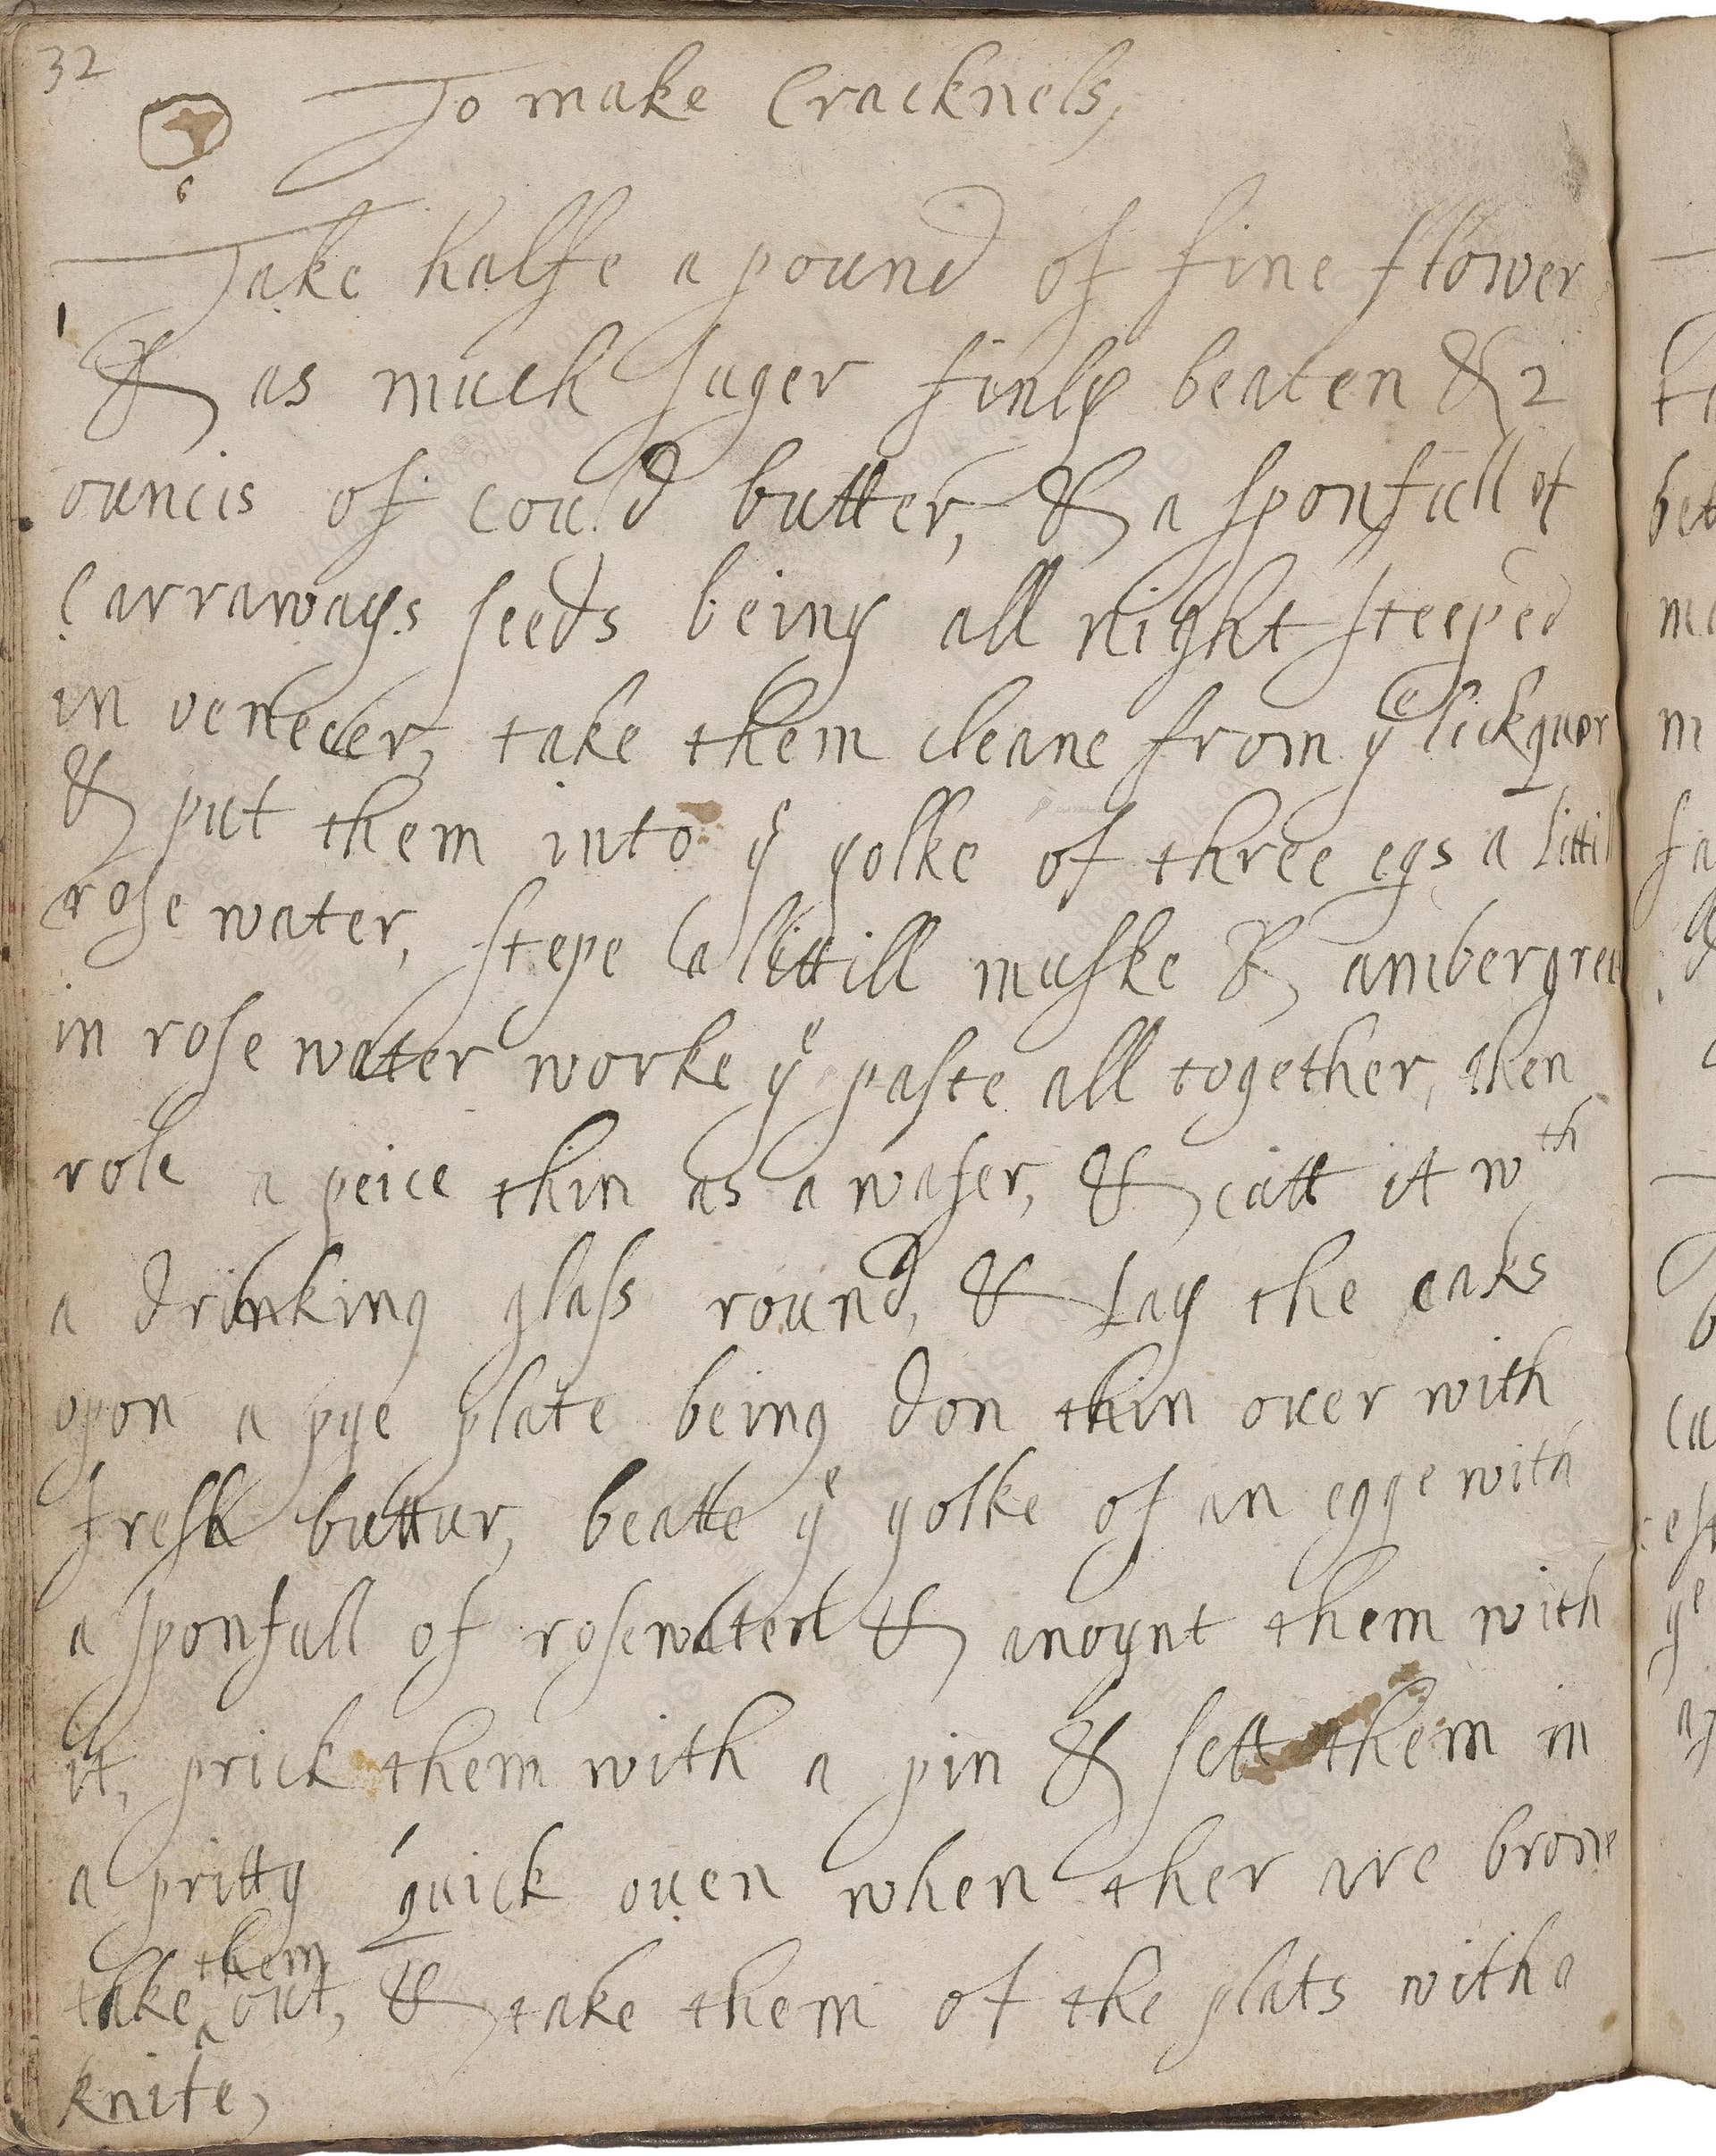 32
To make Cracknels,
6
Take halfe a pound of fine flower
& as much suger finly beaten & 2
ouncis of could butter, & a sponfull of
Carraways seeds being all night steeped
in veneger, take them cleane from yᵉ lickquor
& put them into yᵉ yolke of three egs a littill
rose water, stepe a littill muske & ambergree
in rose water worke yᵉ paste all together, then
role a peice thin as a wafer, & cutt it wᵗʰ
a drinking glass round, & Lay the caks
opon a pye plate being don thin over with
fresh buttur, beatte yᵉ yolke of an egge with
a sponfull of rosewater & anoynt them with
it, prick them with a pin & sett them in
a pritty quick ouen when ther are browne
take ^them out, & take them of the plats with a
knife,